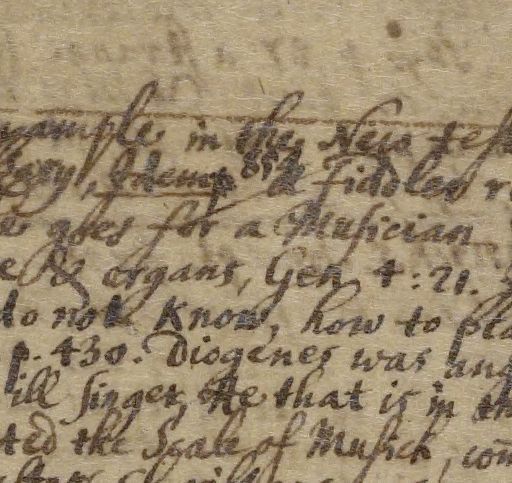 in the New
Idem p 85. A Fidler
goes for a Musician
& organs, Gen 4:21.
do not know, how to pla
p. 430. Diogenes was ang
ill singer, He that is in th
ted the Scale of Musick, com